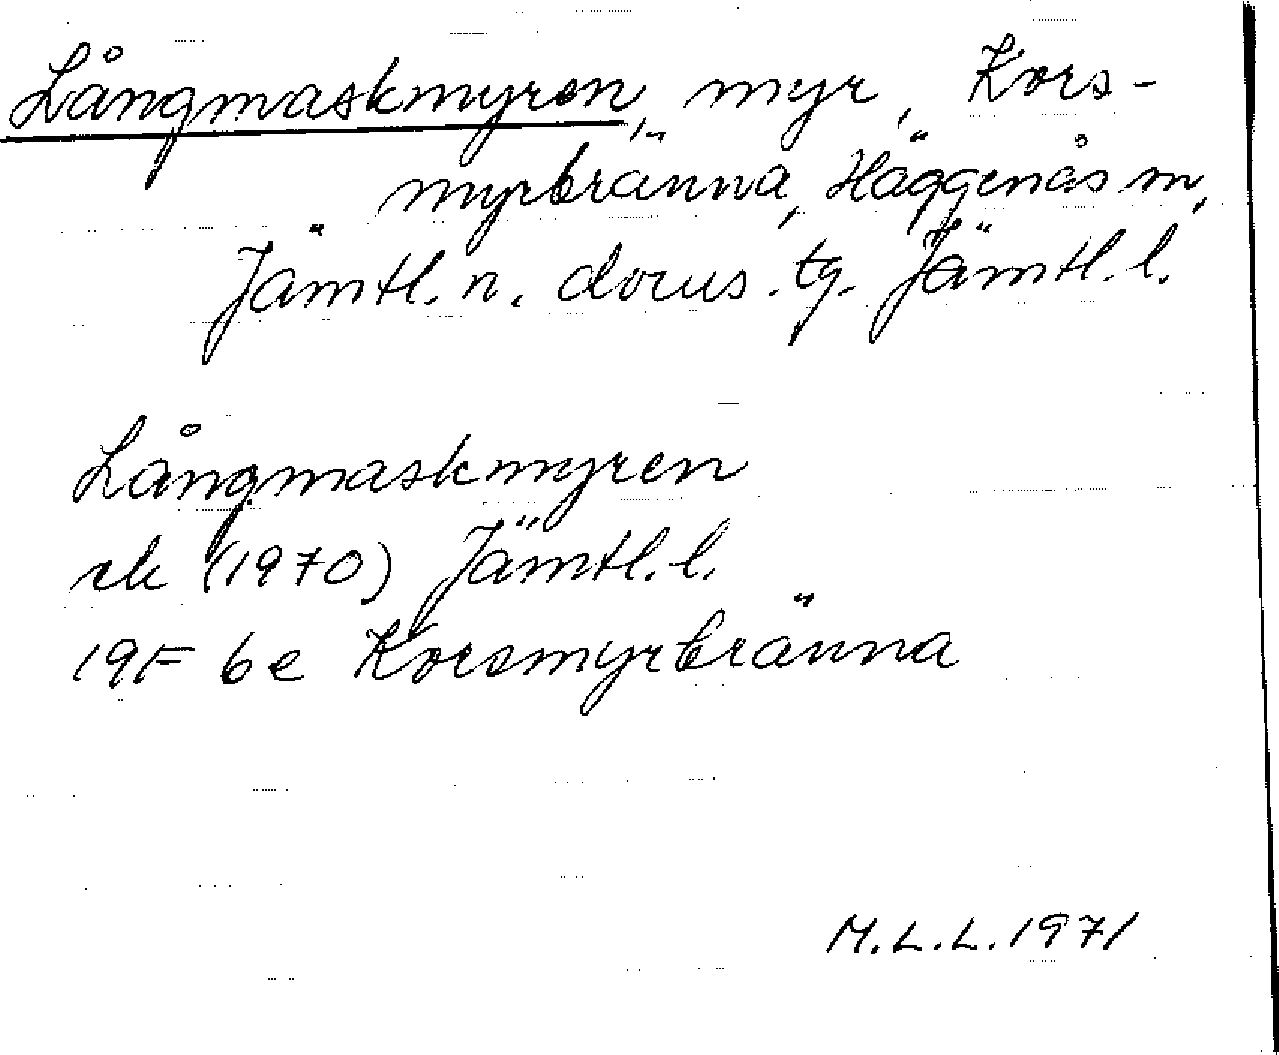 Långmaskmyren, myr, Kors-
myrbränna, Häggenås sn,
Jämtl. n. doms. tg. Jämtl. l.
Långmaskmyren
ek (1970) Jämtl. l.
19F 6e Korsmyrbränna
M.L.L. 1971